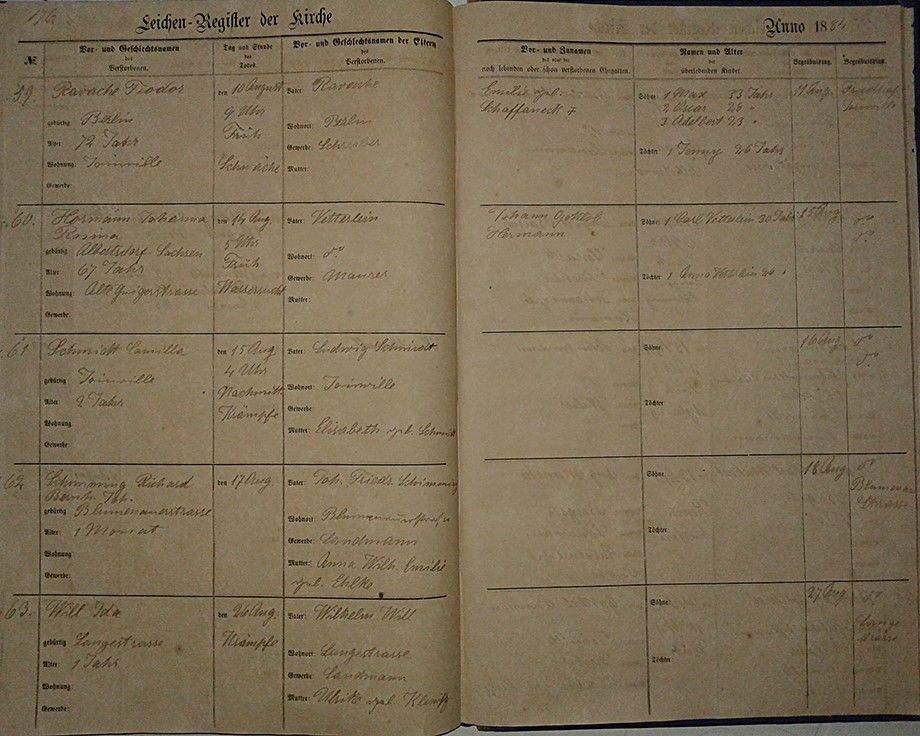 Leichen-Register der Kirche
Anno 1884
№
Vor- und Geschlechtsnamen des Verstorbenen.
Tag und Stunde des Todes.
Vor- und Geschlechtsnamen der Eltern des Verstorbenen.
Vor- und Zunamen
noch lebenden oder schon verstorbenen Ehegatten.
Namen und Alter der überlebenden Kinder.
59.
Ravache Teodor
gebürtig Berlin
Alter: 72 Jahr
Wohnung: Joinville
Gewerbe:
den 10 August
9 Uhr
Früh
Schwäche
Vater: Ravache
Wohnort: Berlin
Gewerbe: Schreiber
Mutter:
Emilie geb.
Schaffaneck
Söhne 1 Max 33 Jahr
2 Oscar 26 "
3 Adelbert 23 "
Töchter 1 Jenny 26 Jahr
11 Aug.
Joinville
60.
Hermann Johanna
Rosina
gebürtig Albertsdorf Sachsen
Alter: 67 Jahr
Wohnung:
Gewerbe:
den 14 Aug.
5 Uhr
Früh
Wassersucht
Vater: Vetterlein
Wohnort: do
Gewerbe: Maurer
Mutter:
Johann Gottlob
Hermann
Söhne 1 Carl Vetterlein 30 Jahr
Töchter 1 Anna
15 Aug
do
do
61
Schmidt Camilla
gebürtig Joinville
Alter: 2 Jahr
Wohnung
Gewerbe:
den 15 Aug
4 Uhr
Nachmitt.
Krämpfe
Vater: Ludwig Schmidt
Wohnort: Joinville
Gewerbe
Mutter: Elisabeth geb. Schmidt
Söhne
Töchter
16 Aug
do
do
62
Schimming Richard
gebürtig Blumenauerstrasse
Alter: 1 Monat
Wohnung
Gewerbe:
den 17 Aug.
Vater: Joh. Friedr. Schimming
Wohnort:
Gewerbe: Landmann
Mutter: Anna Wilh. Emilie
geb. Ehlke
Söhne
Töchter
18 Aug
do
Strasse
63.
Will Ida
gebürtig Langestrasse
Alter: 1 Jahr
Wohnung
Gewerbe:
den 26 Aug.
Krämpfe
Vater: Wilhelm Will
Wohnort: Langestrasse
Gewerbe: Landmann
Mutter: Ulrike geb.
Söhne
Töchter
27 Aug
do
Lange
strasse